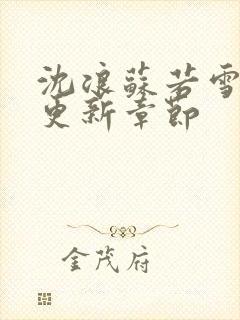 沈浪蘇若雪
更新章節
金茂府